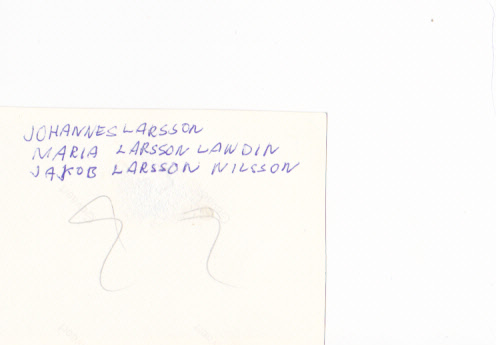 JOHANNES LARSSON
MARIA LARSSON LAWDIN
JAKOB LARSSON NILSSON